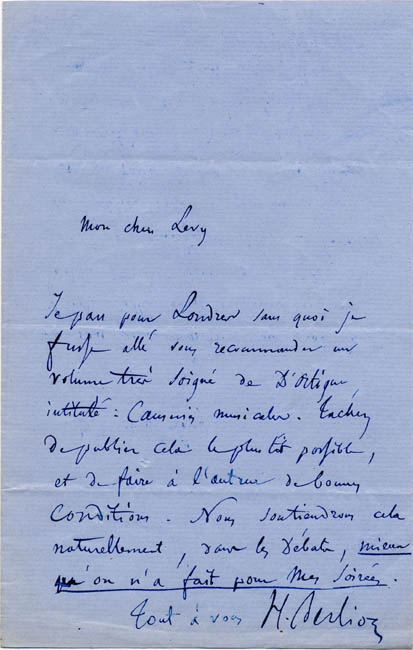 Mon cher Levy
Je pars pour Londres sans quoi je
fusse allé vous recommander un
volume très soigné de D'Ortigue
intitulé : Causeries musicales. Tâchez
de publier cela le plus tôt possible,
et de faire à l'auteur de bonnes
conditions. Nous soutiendrons cela
naturellement, dans les Débats, mieux
qu'on n'a fait pour mes Soirées.
Tout à vous H. Berlioz